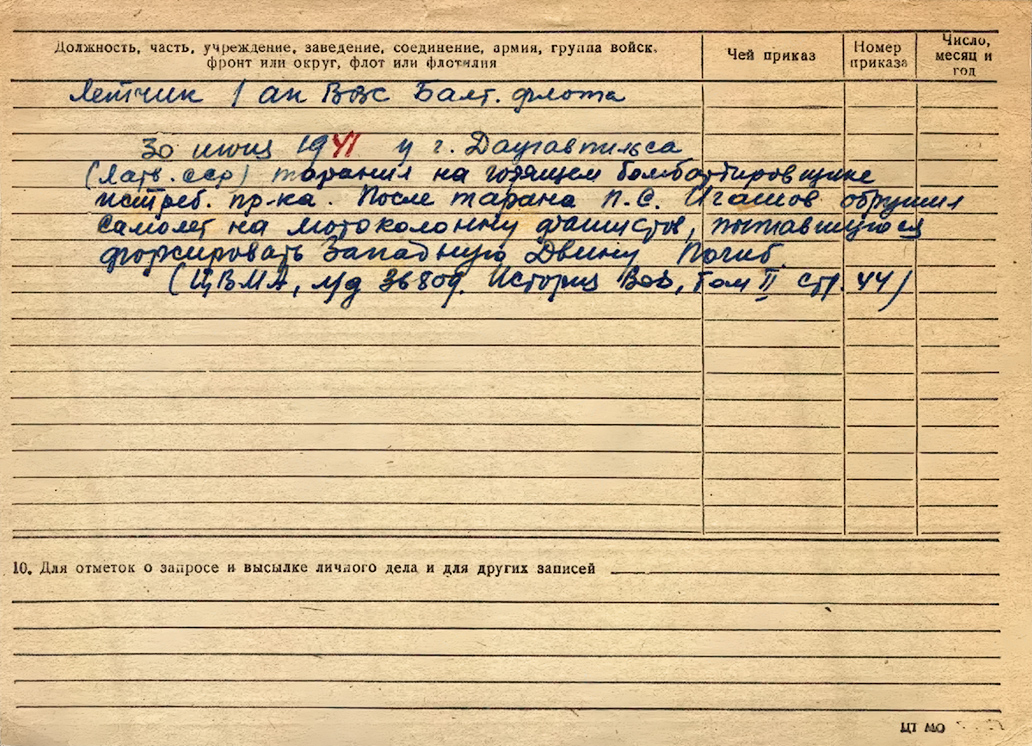 Должность, часть, учреждение, заведение, соединение, армия, группа войск,
фронт или округ, флот или флотилия
Чей приказ
Номер
приказа
Число,
месяц и
год
Летчик 1 ап ВВС Балт. флота
30 июня 1941 у г. Даугавпилса
(Латв. сср) таранил на горящем бомбардировщике
истреб. пр-ка. После тарана П.С. Игашов обрушил
самолет на мотоколонну фашистов, пытавшуюся
форсировать Западную Двину Погиб.
(ЦВМА, л/д 36809. История Вов, том II стр. 44)
10. Для отметок о запросе и высылке личного дела и для других записей